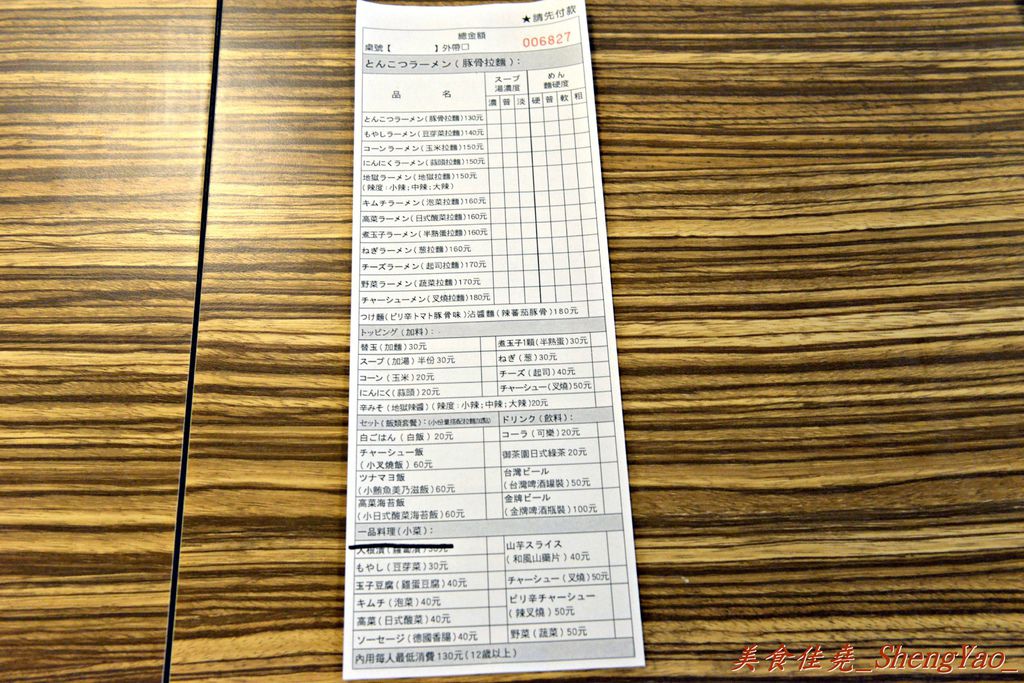 ★請先付款
總金額
桌號【 】外帶□ 006827
とんこつラーメン(豚骨拉麵):
品 名 スープ 湯濃度 めん 麵硬度
濃 普 淡 硬 普 軟 粗
とんこつラーメン(豚骨拉麵)130元
もやしラーメン(豆芽菜拉麵)140元
コーンラーメン(玉米拉麵)150元
にんにくラーメン(蒜頭拉麵)150元
地獄ラーメン(地獄拉麵)150元
(辣度:小辣;中辣;大辣)
キムチラーメン(泡菜拉麵)160元
高菜ラーメン(日式酸菜拉麵)160元
煮玉子ラーメン(半熟蛋拉麵)160元
ねぎラーメン(葱拉麵)160元
チーズラーメン(起司拉麵)170元
野菜ラーメン(蔬菜拉麵)170元
チャーシューメン(叉燒拉麵)180元
つけ麵(ピリ辛トマト豚骨味)沾醬麵(辣蕃茄豚骨)180元
トッピング(加料):
替玉(加麵)30元 煮玉子1顆(半熟蛋)30元
スープ(加湯)半份30元 ねぎ(葱)30元
コーン(玉米)20元 チーズ(起司)40元
にんにく(蒜頭)20元 チャーシュー(叉燒)50元
辛みそ(地獄辣醬)(辣度:小辣;中辣;大辣)20元
セット(飯類套餐):(小份量搭配拉麵加點) ドリンク(飲料):
白ごはん(白飯)20元 コーラ(可樂)20元
チャーシュー飯 御茶園日式綠茶20元
(小叉燒飯)60元
ツナマヨ飯 台灣ビール
(小鮪魚美乃滋飯)60元 (台灣啤酒罐裝)50元
高菜海苔飯 金牌ビール
(小日式酸菜海苔飯)60元 (金牌啤酒瓶裝)100元
一品料理(小菜):
大根漬(蘿蔔漬)30元 山芋スライス
(和風山藥片)40元
もやし(豆芽菜)30元
玉子豆腐(雞蛋豆腐)40元 チャーシュー(叉燒)50元
キムチ(泡菜)40元 ピリ辛チャーシュー
高菜(日式酸菜)40元 (辣叉燒)50元
ソーセージ(德國香腸)40元 野菜(蔬菜)50元
內用每人最低消費130元(12歲以上)
美食佳堯_ShengYao_